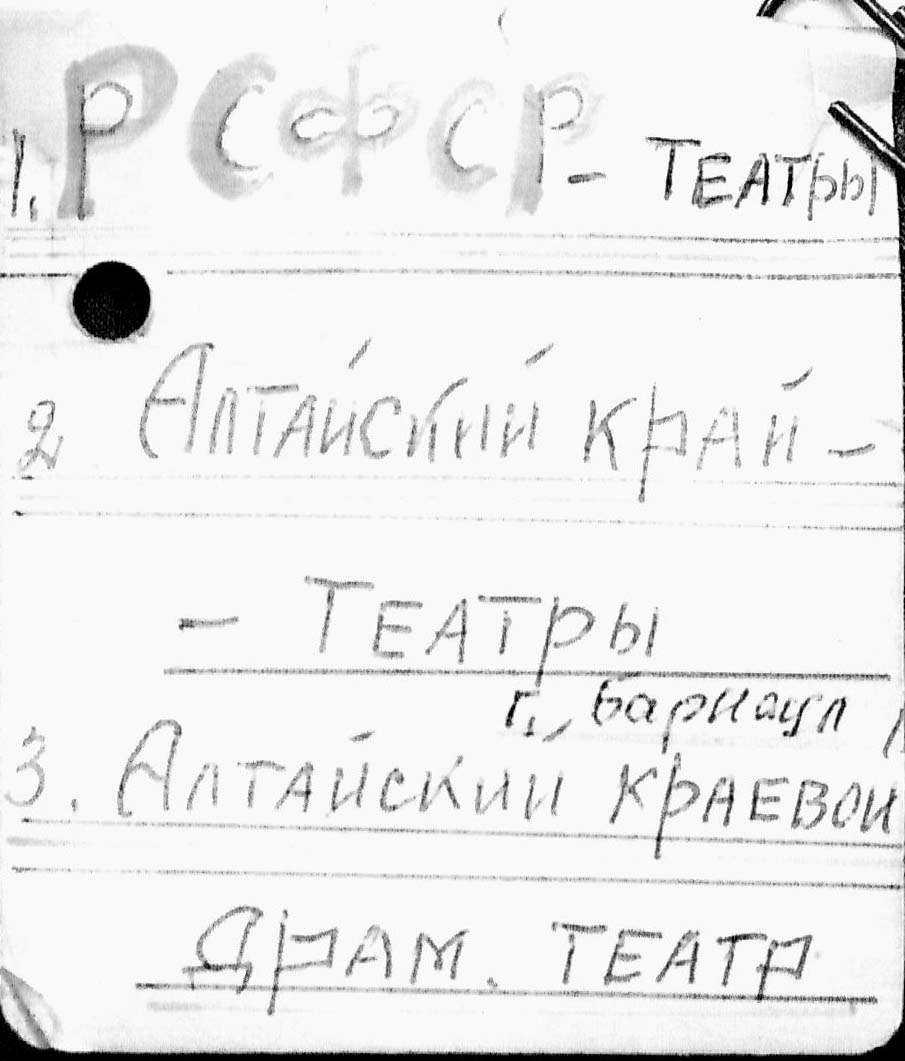 1. РСФСР - ТЕАТРЫ
2 АЛТАЙСКИЙ КРАЙ -
- ТЕАТРЫ
г. Барнаул
3. АЛТАЙСКИЙ КРАЕВОЙ
ДРАМ. ТЕАТР